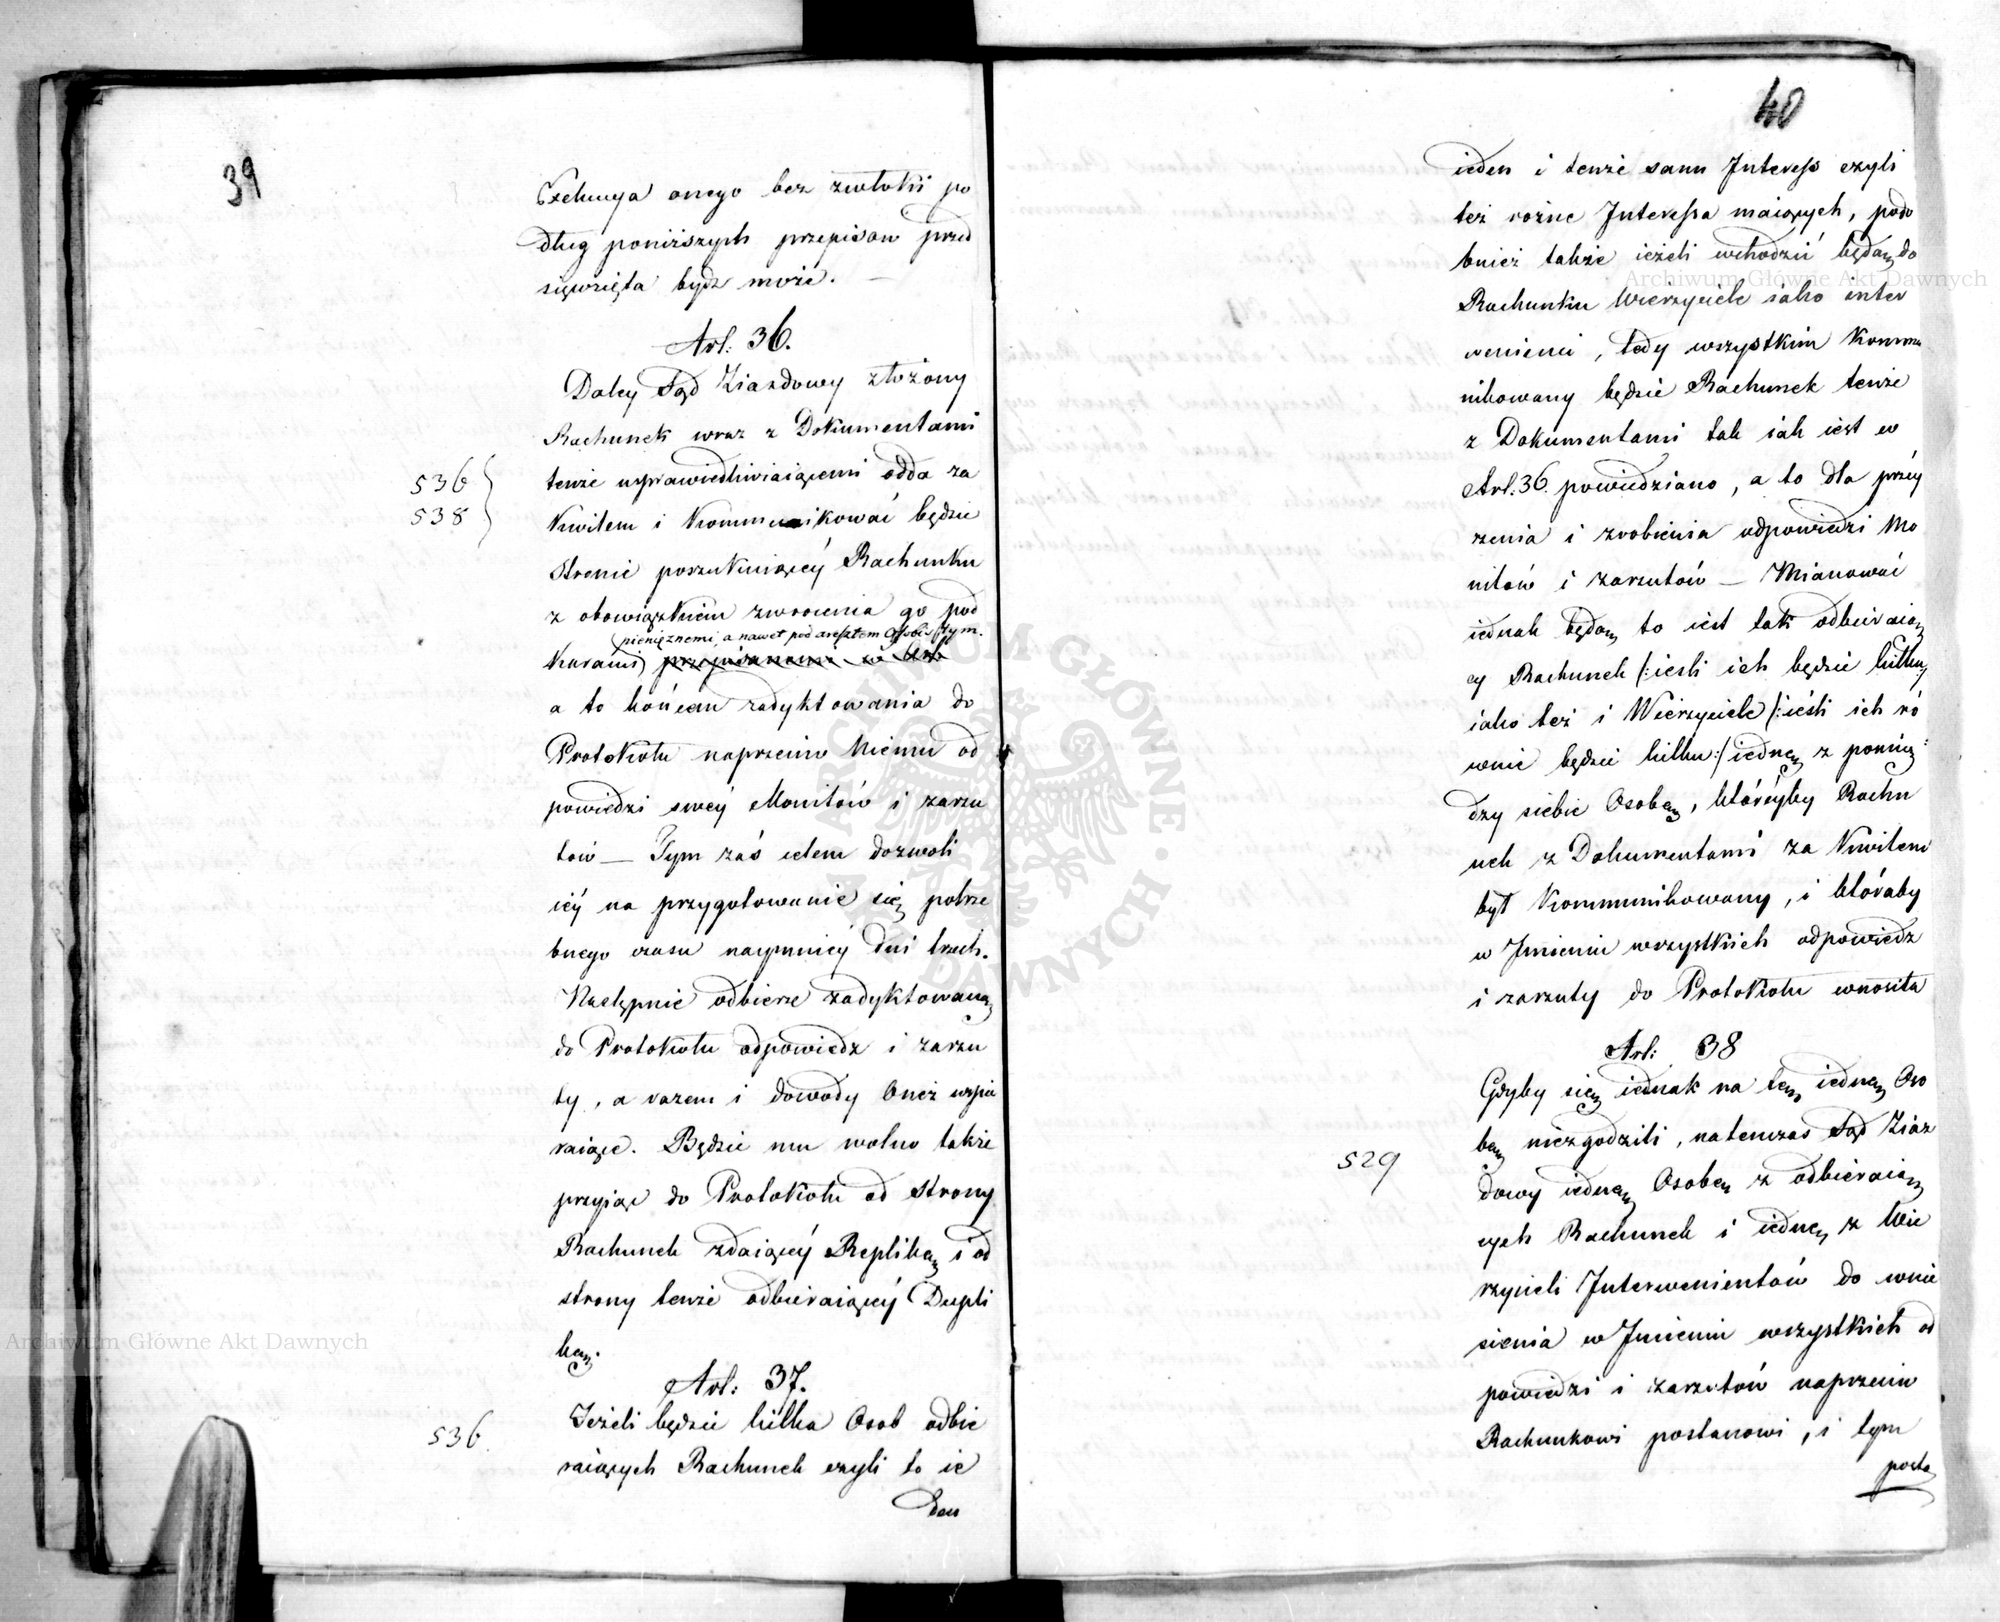 39
Exekucya onego bez zwłoki po
dług poniższych przepisow przed
sięwzięta bydz może. —
Art: 36.
Daley Sąd Ziazdowy złożony
Rachunek wraz z Dokumentami
536
538
tenże usprawiedliwiaiącemi odda za
Kwitem i Kommunikować będzie
Stronie poszukuiącéy Rachunku
z obowiązkiem zwrocenia go pod
pienięznemi, a nawet pod aresztem Osobistym.
Karami przepisanemi w Art
a to końcem zadyktowania do
Protokołu naprzeciw Niemu od
powiedzi swéy Monitów i zarzu
tów — Tym zaś celem dozwoli
iéy na przygotowanie się potrze
bnego czasu naymniéy dni trzech.
Następnie odbierze zadyktowaną
do Protokołu odpowiedz i zarzu
ty, a razem i dowody Oneż wspie
raiące. Będzie mu wolno także
przyiąc do Protokołu od strony
Rachunek zdaiącéy Replikę i od
strony tenże odbieraiącéy Dupli
kę.
Art: 37.
536.
Jeżeli będzie kilka Osob odbie
raiących Rachunek czyli to ie
den
40
ieden i tenże sam Interess czyli
też rożne Interessa maiących, podo
bnież także ieżeli wchodzić będą do
Rachunku Wierzyciele iako inter
wenienci, tedy wszystkim Kommu
nikowany będzie Rachunek tenże
z Dokumentami tak iak iest w
Art. 36. powiedziano, a to dla przéy
rzenia i zrobienia odpowiedzi Mo
nitów i zarzutów — Mianować
iednak będą to iest tak odbieraią
cy Rachunek /:ieśli ich będzie kilku:/
iako też i Wierzyciele /:ieśli ich ró
wnie będzie kilku:/ iednę z pomię:
dzy siebie Osobę, któréyby Rachu
nek z Dokumentami za Kwitem
był Kommunikowany, i któraby
w Imieniu wszystkich odpowiedz
i zarzuty do Protokołu wnosiła
Art: 38
Gdyby się iednak na tę iednę Oso
bę niezgodzili, natenczas Sąd Ziaz
529
dowy iednę Osobę z odbieraią
cych Rachunek i iednę z Wie
rzycieli Interwenientów do wnie
sienia w Imieniu wszystkich od
powiedzi i zarzutów naprzeciw
Rachunkowi postanowi, i tym
posta
Archiwum Główne Akt Dawnych
Archiwum Główne Akt Dawnych
ARCHIWUM GŁÓWNE AKT DAWNYCH